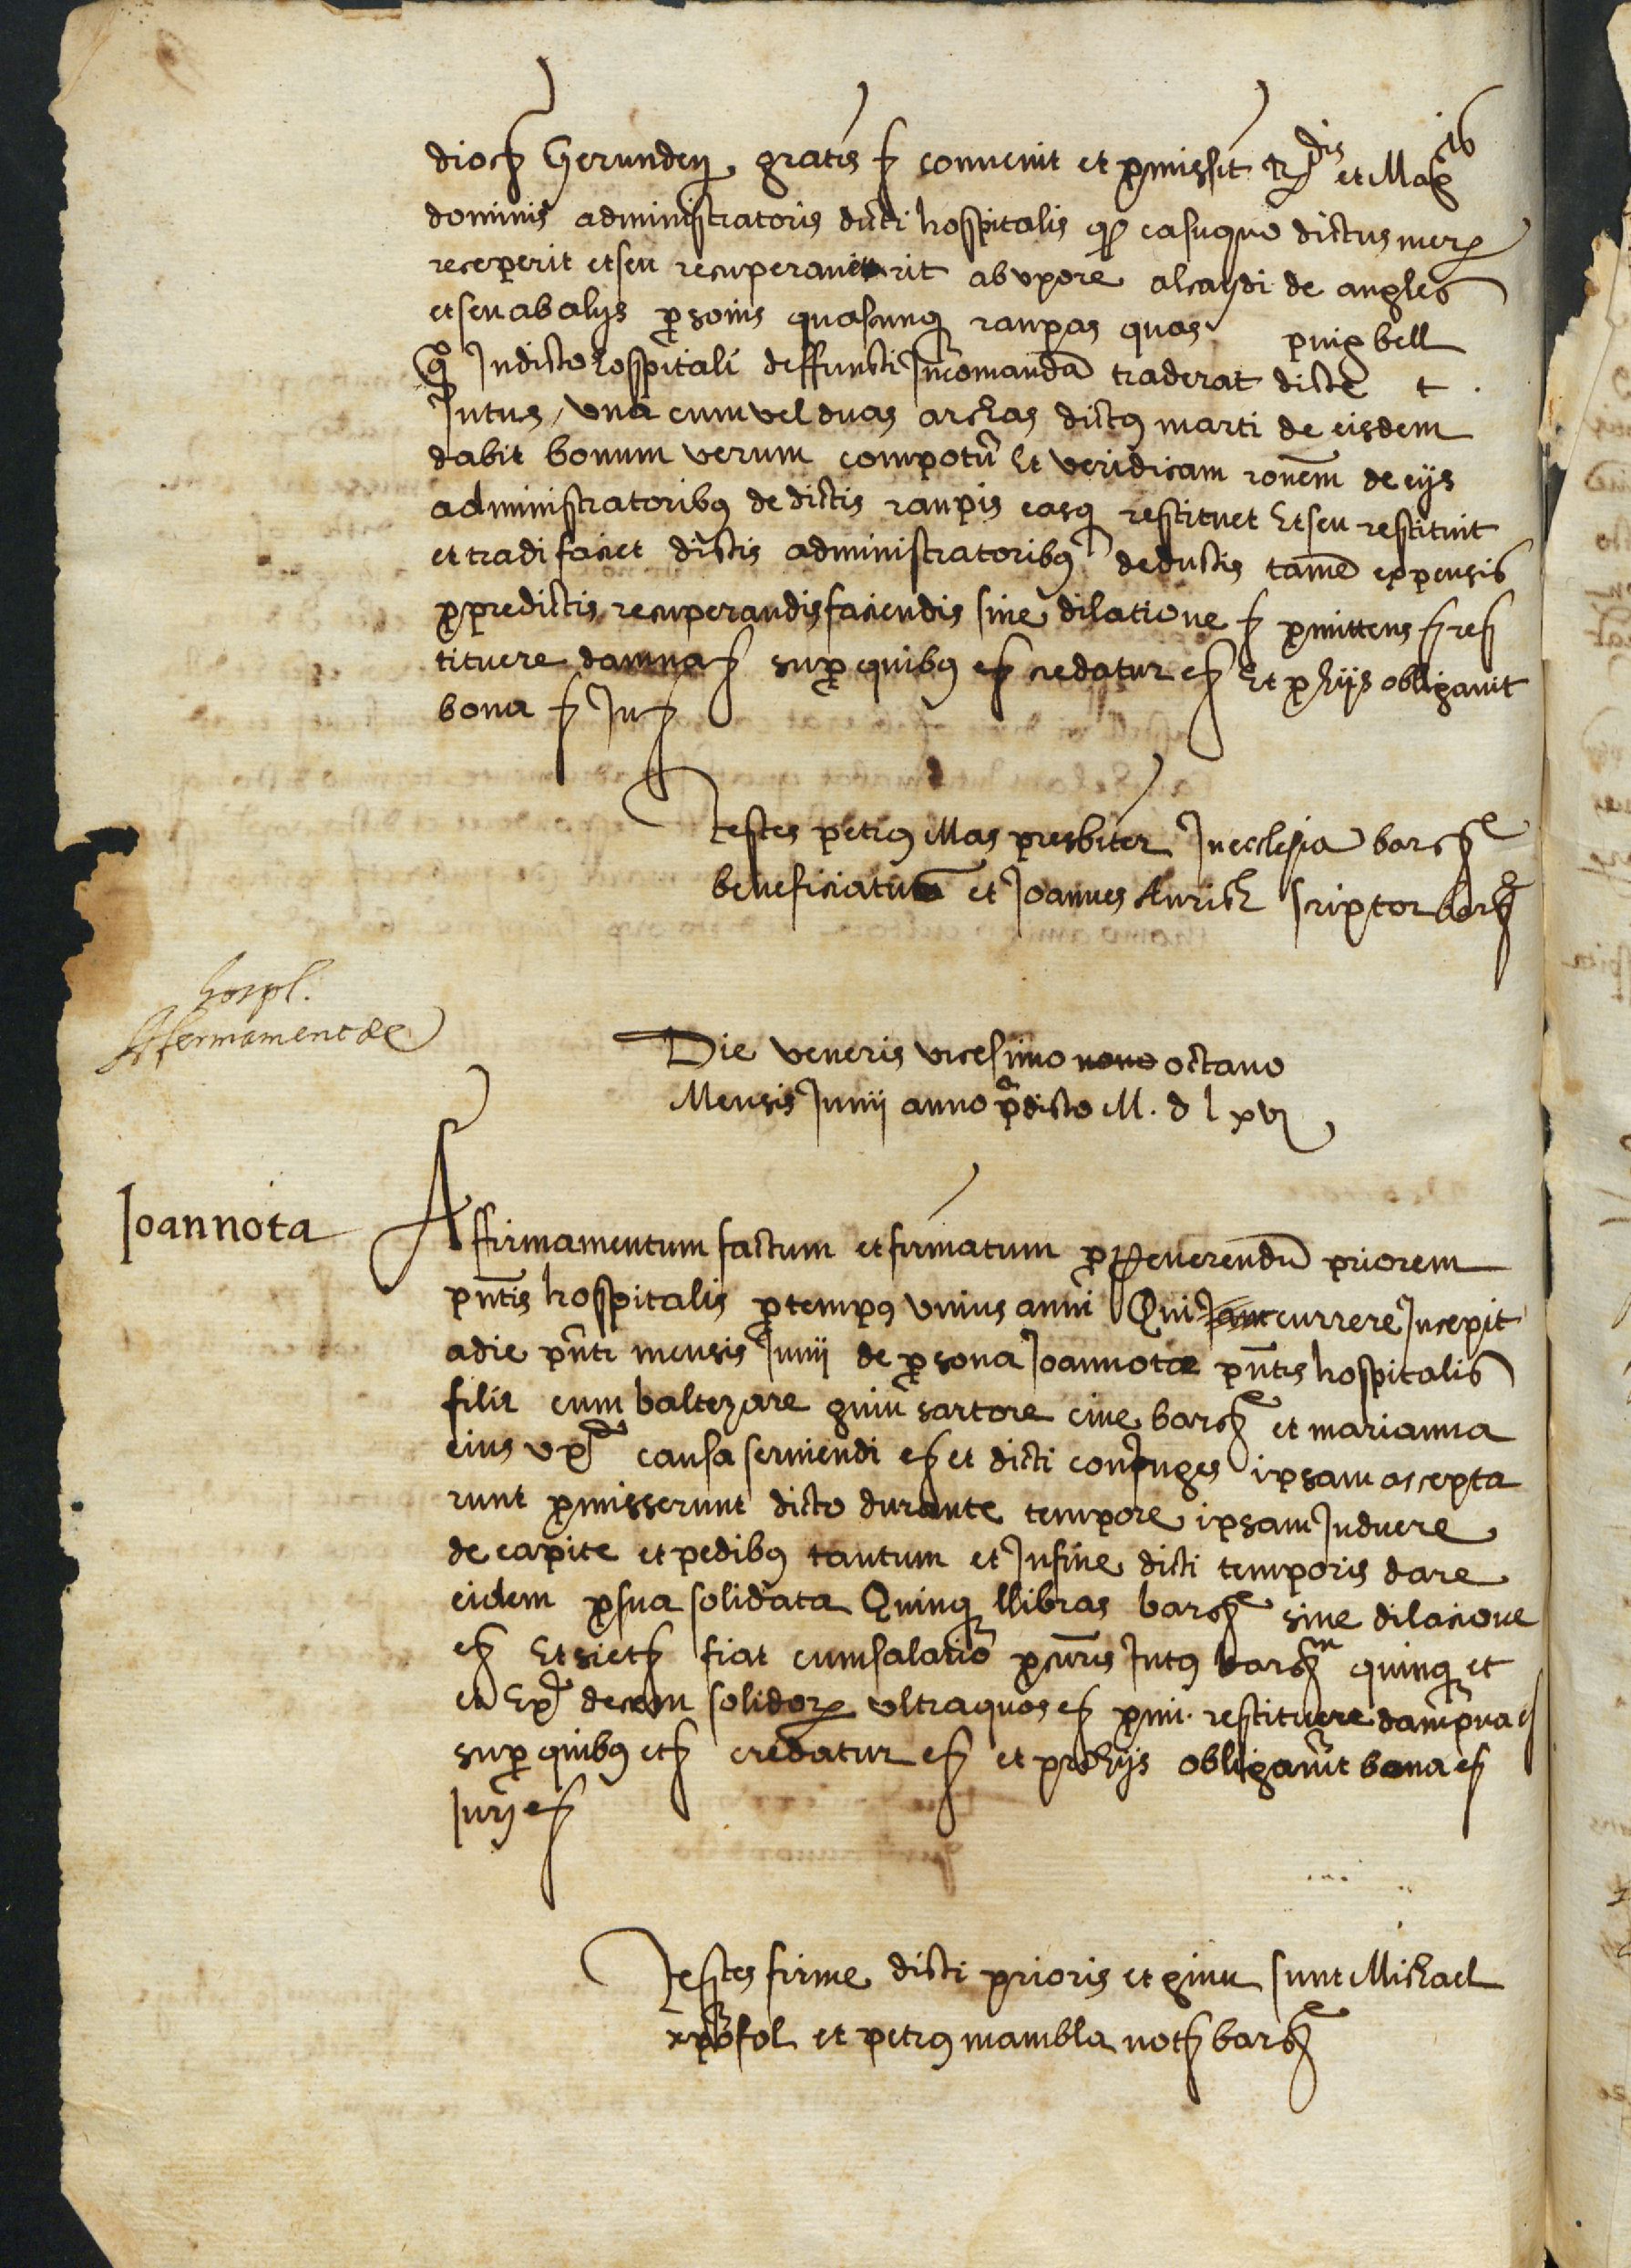 dioc Gerunden gratis etc convenit et promissit Rdis et Magcis
dominis administratoris dicti hospitalis quod casuquo dictus mer
receperit et seu recuperaverit ab uxore alcaydi de angles
et seu ab alijs personis quascunque raupas quas puigbell
In dicto hospitali deffuncti Incomanda traderat dicte t.
Intus, una cum vel duas archas dictus marti de eisdem
dabit bonum verum compotum Et veridicam rationem de eijs
administratoribus de dictis raupis easque restituet Et seu restituit
et tradi faciet dictis administratoribus deductis tamen expensis
pro predictis recuperandis faciendis sine dilatione etc promittens etc res
tituere damna etc super quibus etc credatur etc Et pro hijs obligavit
bona etc Iu etc
Testes petrus Mas presbiter In ecclesia barche
beneficiatus et Joannes Anrich scriptor barche
hospl.
Afermament de
Die veneris vicesimo novo octavo
Mensis Junij anno predicto M. d lxvj
Joannota
Affirmamentum factum et firmatum per Reverendum priorem
pntis hospitalis pro tempus unius anni Qui Jam currere Incepit
a die pnti mensis Junij de persona Joannotae pntis hospitalis
filie cum baltezare guiu sartore cive barche et marianna
eius uxe causa serviendi etc et dicti conjuges ipsam accepta
runt promisserunt dicto durante tempore ipsam Induere
de capite et pedibus tantum et In fine dicti temporis dare
eidem pro sua solidata Quinque llibras barche sine dilacione
etc Et sic etc fiat cum salario procuris Intus barchm quinque et
ex decem solidorum ultra quos etc promi. restituere dampna etc
super quibus etc credatur etc et pro hijs obligarunt bona etc
Jurj etc
Testes firme dicti prioris et guiu sunt Michael
xpofol et petrus mambla not barche